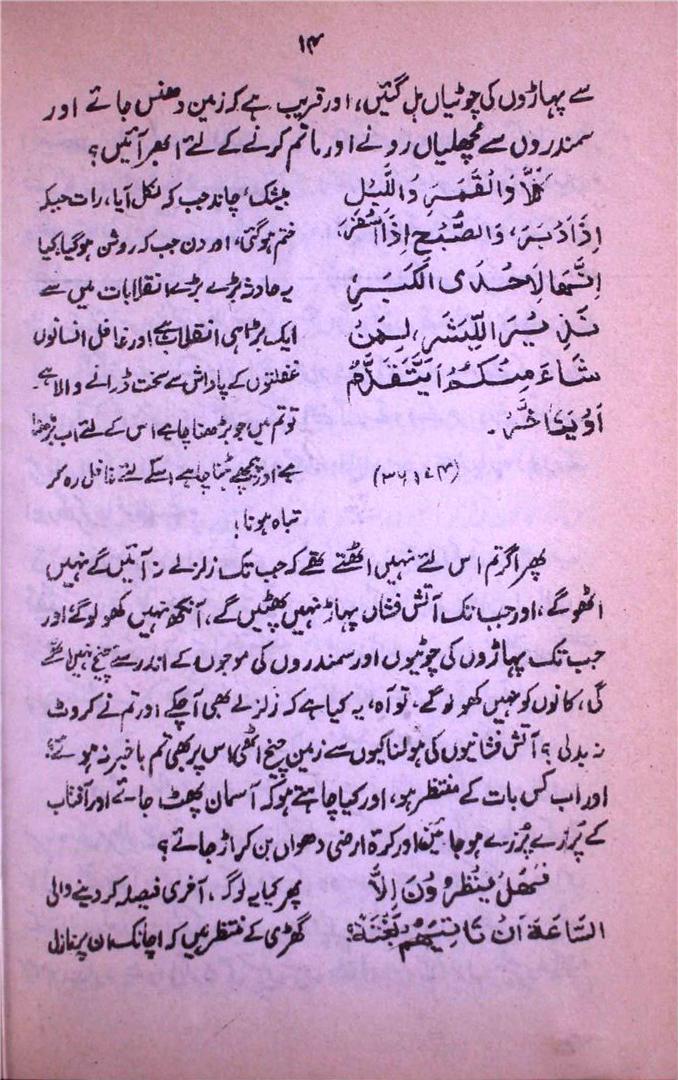 ۱۴
سے پہاڑوں کی چوٹیاں ہل گئیں، اور قریب ہے کہ زمین دھنس جائے اور
سمندروں سے مچھلیاں رونے اور ماتم کرنے کے لئے ابھر آئیں؟
كَلَّا وَالْقَمَرِ وَاللَّيْلِ
اِذَا دُبَرَ، وَالصُّبْحِ اِذَا اَسْفَرَ،
اِنَّهَا لَاِحْدَى الْكُبَرِ
نَذِيْرًا لِّلْبَشَرِ، لِمَنْ
شَاءَ مِنْكُمْ اَنْ يَّتَقَدَّمَ
اَوْ يَتَاَخَّرَ۔
(۳۶،۷۴)
بیشک چاند جب کہ نکل آیا، رات جبکہ
ختم ہو گئی، اور دن جب کہ روشن ہو گیا، کیا
یہ حادثہ بڑے بڑے انقلابات میں سے
ایک بڑا ہی انقلاب ہے اور غافل انسانوں
غفلتوں کے پاداش سے سخت ڈرانے والا ہے۔
تو تم میں جو بڑھنا چاہے اس کے لئے اب بڑھنا
ہے اور پیچھے ہٹنا چاہے اسکے لئے غافل رہ کر
تباہ ہونا۔
پھر اگر تم اس لئے نہیں اٹھتے تھے کہ جب تک زلزلے نہ آئیں گے نہیں
اٹھو گے، اور جب تک آتش فشاں پہاڑ نہیں پھٹیں گے، آنکھ نہیں کھولو گے اور
جب تک پہاڑوں کی چوٹیوں اور سمندروں کی موجوں کے اندر سے چیخ نہیں اٹھے
گی، کانوں کو نہیں کھولو گے۔ تو آہ، یہ کیا ہے کہ زلزلے بھی آ چکے اور تم نے کروٹ
نہ بدلی؟ آتش فشانیوں کی ہولناکیوں سے زمین چیخ اٹھی، اس پر بھی تم با خبر نہ ہوئے؟
اور اب کس بات کے منتظر ہو، اور کیا چاہتے ہو کہ آسمان پھٹ جائے اور آفتاب
کے پرزے پرزے ہو جائیں اور کرۂ ارضی دھواں بن کر اڑ جائے؟
فَهَلْ يَنْظُرُوْنَ اِلَّا
السَّاعَةَ اَنْ تَاْتِيَهُمْ بَغْتَةً؟
پھر کیا یہ لوگ، آخری فیصلہ کر دینے والی
گھڑی کے منتظر ہیں کہ اچانک ان پر نازل